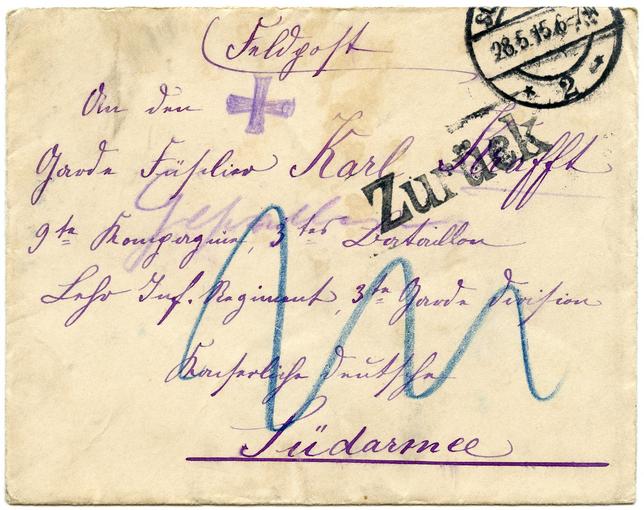 Feldpost
28.5.15.6-7N
* 2 *
An den
Garde Füsilier Karl Krafft
Zurück
9te Kompagnie, 3tes Bataillon
Lehr Inf. Regiment, 3te Garde Division
Kaiserliche Deutsche
Südarmee